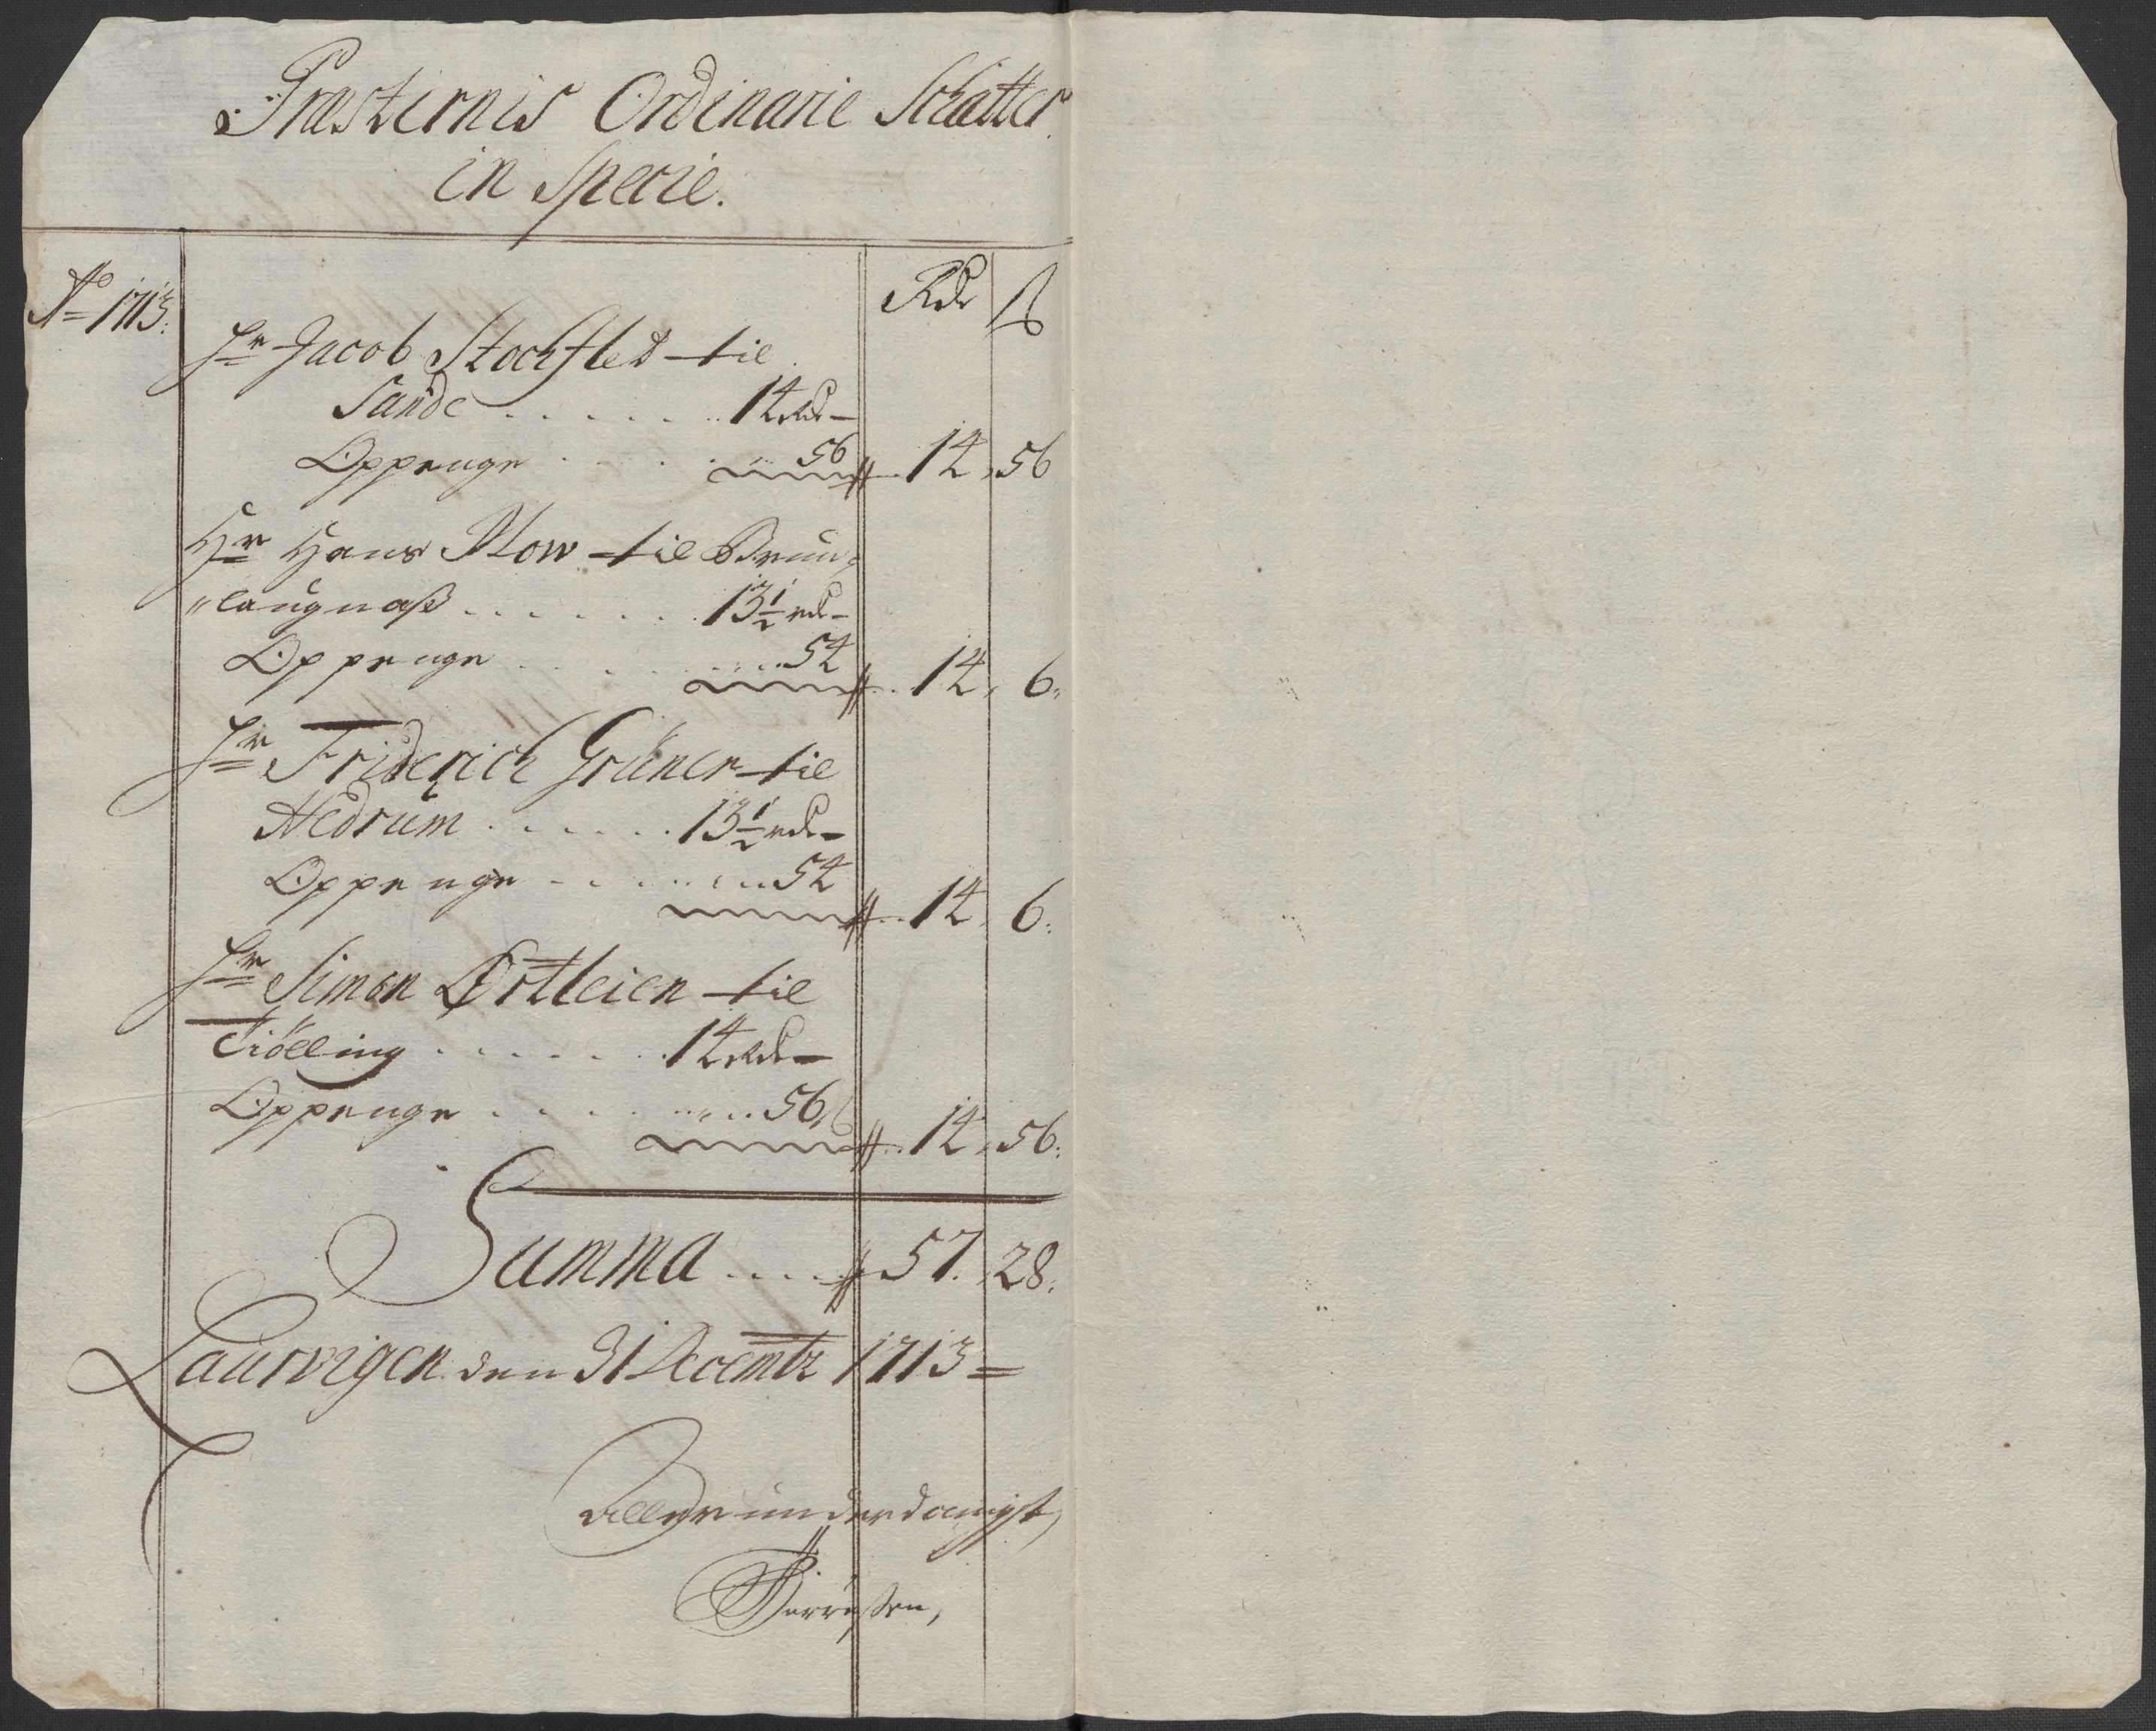 Præsternis Ordinarie Schatter
in Specie.
Ao 1713. Rdr ß
Hr Jacob Stochflet til
Sande . . . . . . 14 Rdr
Oppenge . . . . 56 14 56
Hr Hans Mow til Brun=
"laugnæß . . . . . . 13½ rdr
Oppenge . . . . . 54 14 6
Hr Friderich Grüner til
Hedrum . . . . . . 13½ rdr
Oppenge . . . . . 54 14 6
Hr Simon Ørtleien til
Tiölling . . . . . . 14 Rdr
Oppenge . . . . . 56 ß 14 56
Summa . . . . 57. 28.
Laurvigen den 31 Decembr 1713
Allerunderdanigst